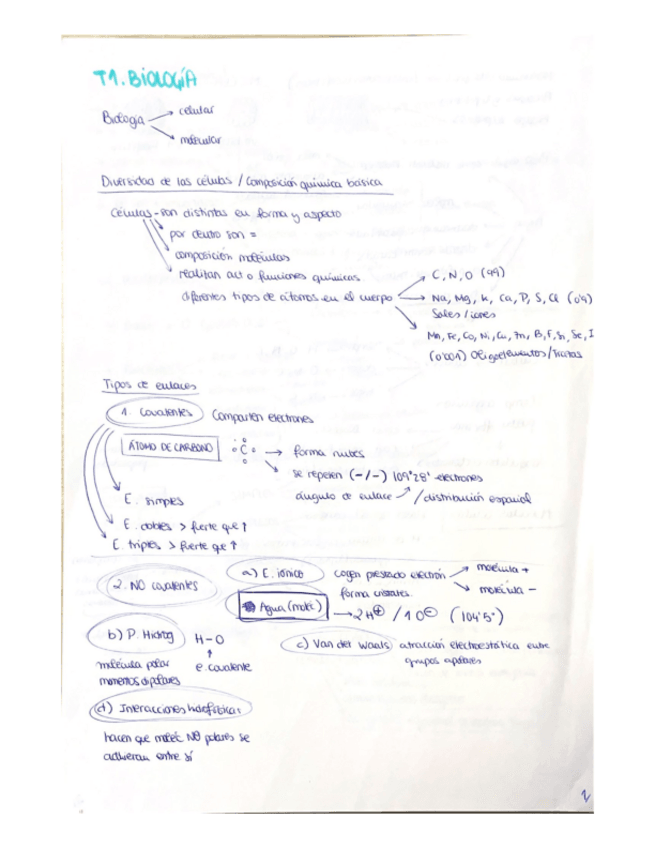 T1. BIOLOGÍA
Biología → celular
→ molecular
Diversidad de las células / Composición química básica
Células - son distintas en forma y aspecto
por dentro son =
composición moléculas
realizan act o funciones químicas
diferentes tipos de átomos en el cuerpo
→ C, N, O (99)
→ Na, Mg, K, Ca, P, S, Cl (0'9)
Sales / iones
Mn, Fe, Co, Ni, Cu, Zn, B, F, Sn, Se, I
(0'001) Oligoelementos / Trazas
Tipos de enlaces
1. Covalentes Comparten electrones
ÁTOMO DE CARBONO C → forma nubes
→ se repelen (-/-) 109º28' electrones
ángulo de enlace / distribución espacial
E. simples
E. dobles > fuerte que ↑
E. triples > fuerte que ↑
2. NO covalentes
a) E. iónico cogen prestado electrón → molécula +
→ molécula -
forma cristales
Agua (moléc) → 2H⊕ / 1O⊖ (104'5º)
b) P. Hidróg H-O
↑
e. covalente
molécula polar
momentos dipolares
c) Van der Waals atracción electroestática entre
grupos apolares
d) Interacciones hidrofóbicas
hacen que moléc NO polares se
adhieran entre sí